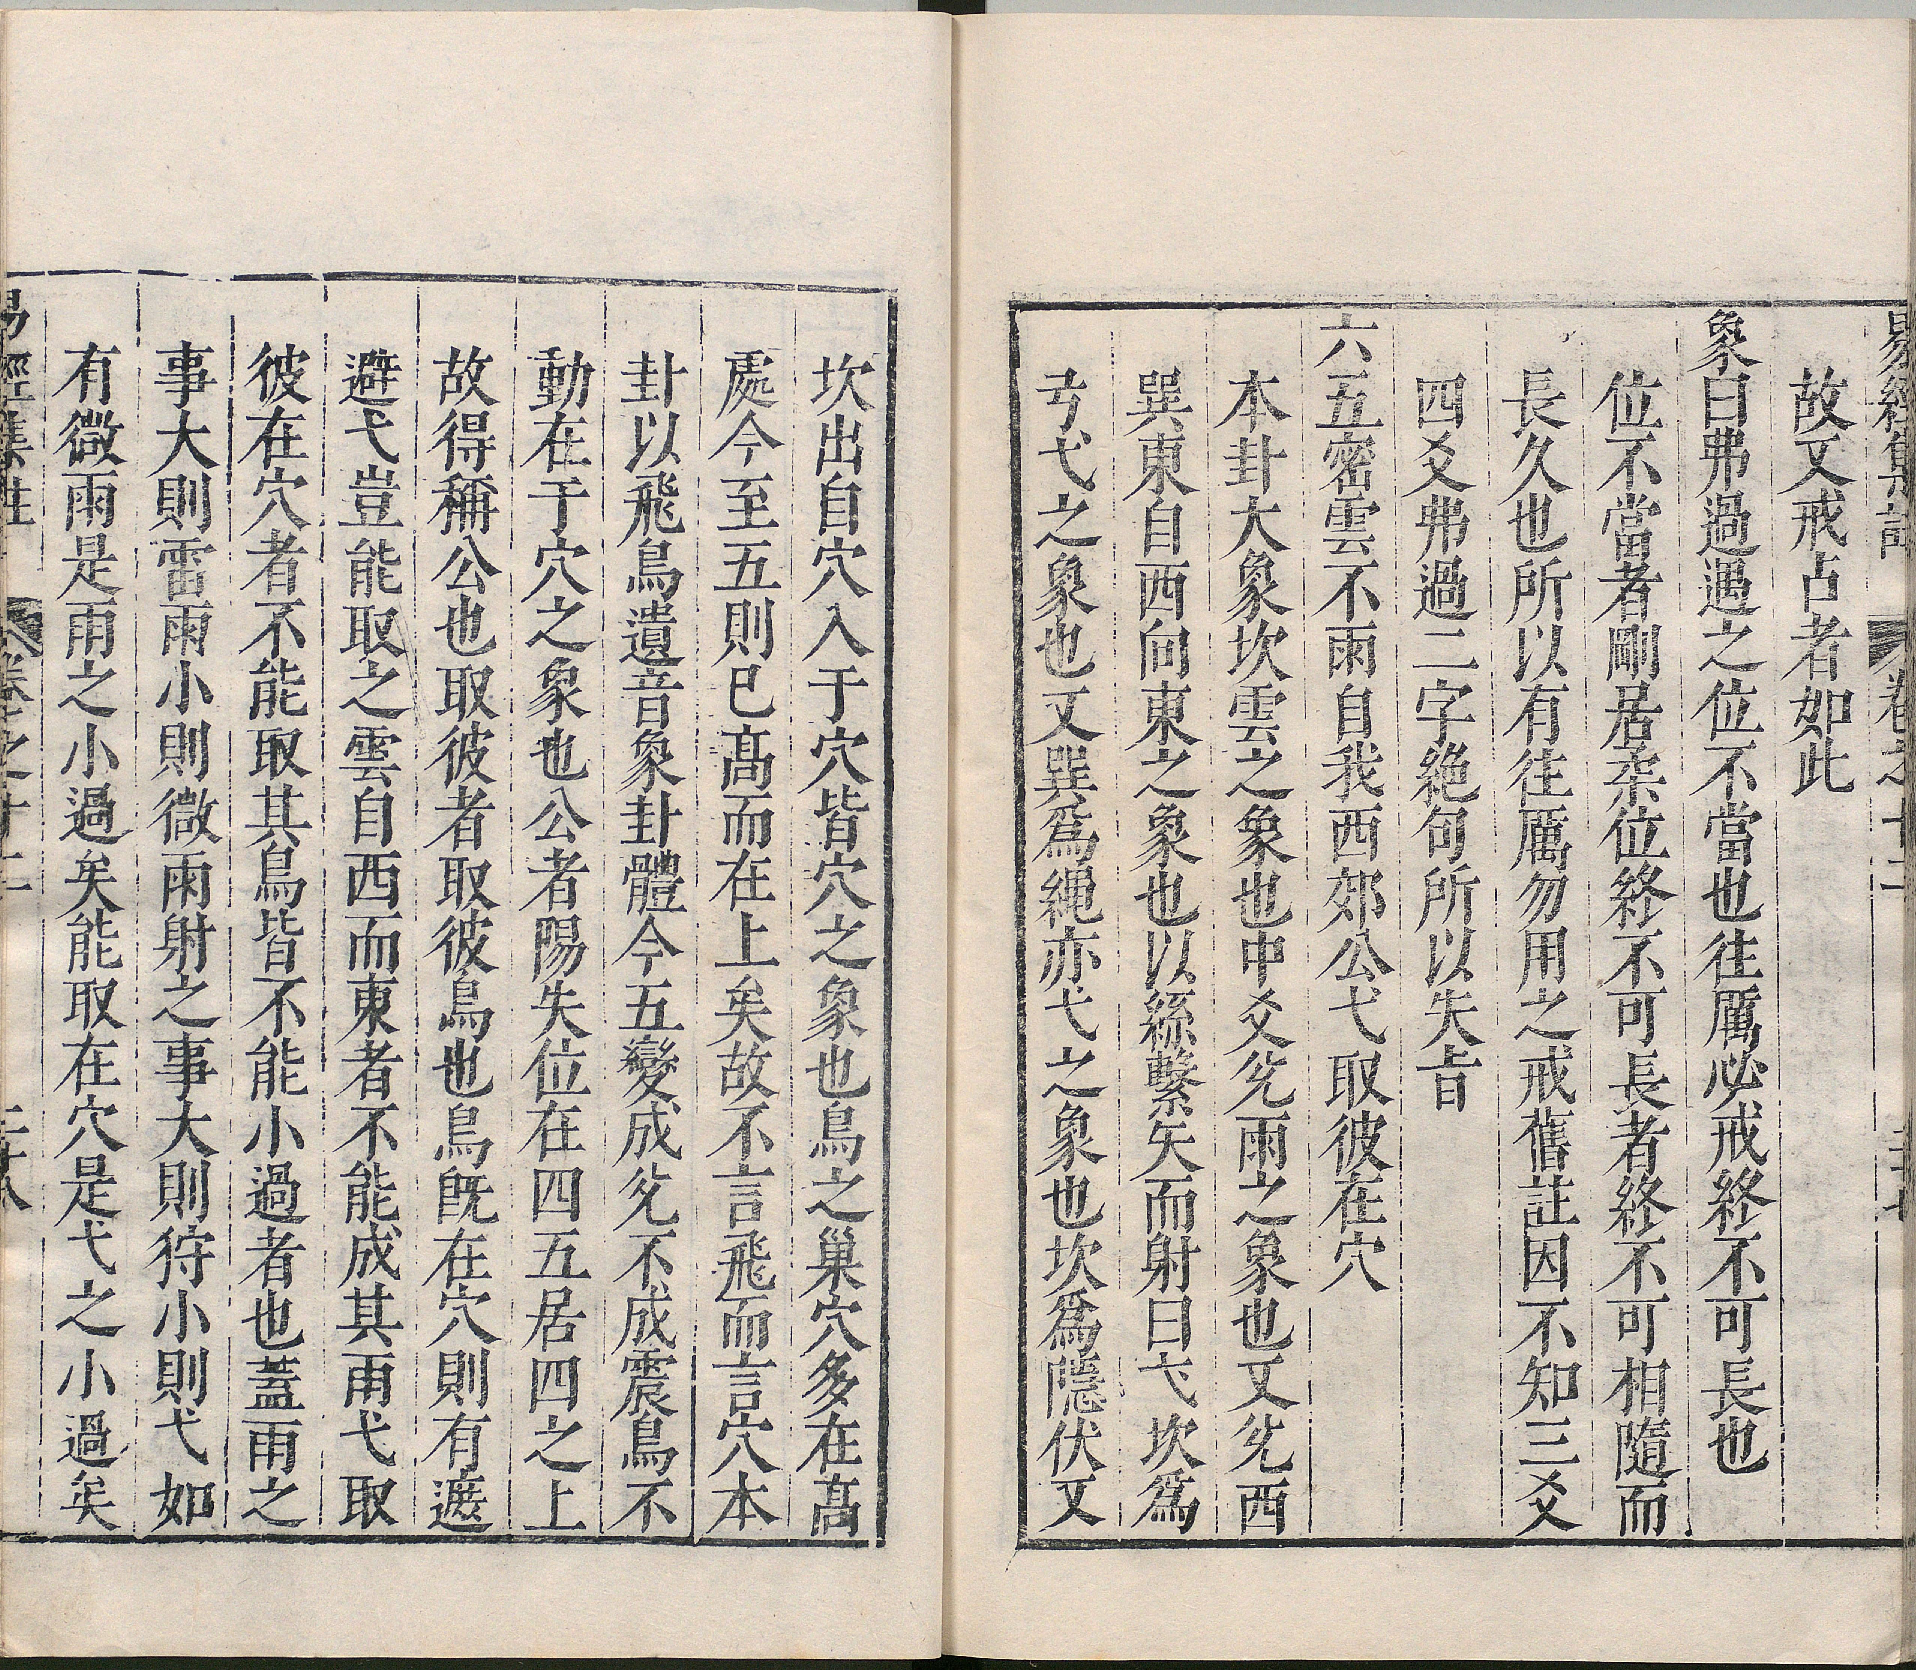 易經集註 卷之十二
故又戒占者如此
象曰弗過遇之位不當也往厲必戒終不可長也
位不當者剛居柔位終不可長者終不可相隨而
長久也所以有往厲勿用之戒舊註因不知三爻
四爻弗過二字絕句所以失旨
六五密雲不雨自我西郊公弋取彼在穴
本卦大象坎雲之象也中爻兊雨之象也又兊西
巽東自西向東之象也以絲繫矢而射曰弋坎爲
弓弋之象也又巽爲繩亦弋之象也坎爲隱伏又
坎出自穴入于穴皆穴之象也鳥之巢穴多在髙
處今至五則已髙而在上矣故不言飛而言穴本
卦以飛鳥遺音象卦體今五變成兊不成震鳥不
動在于穴之象也公者陽失位在四五居四之上
故得稱公也取彼者取彼鳥也鳥旣在穴則有遮
避弋豈能取之雲自西而東者不能成其雨弋取
彼在穴者不能取其鳥皆不能小過者也蓋雨之
事大則雷雨小則微雨射之事大則狩小則弋如
有微雨是雨之小過矣能取在穴是弋之小過矣
易經集註 卷之十二 二十八